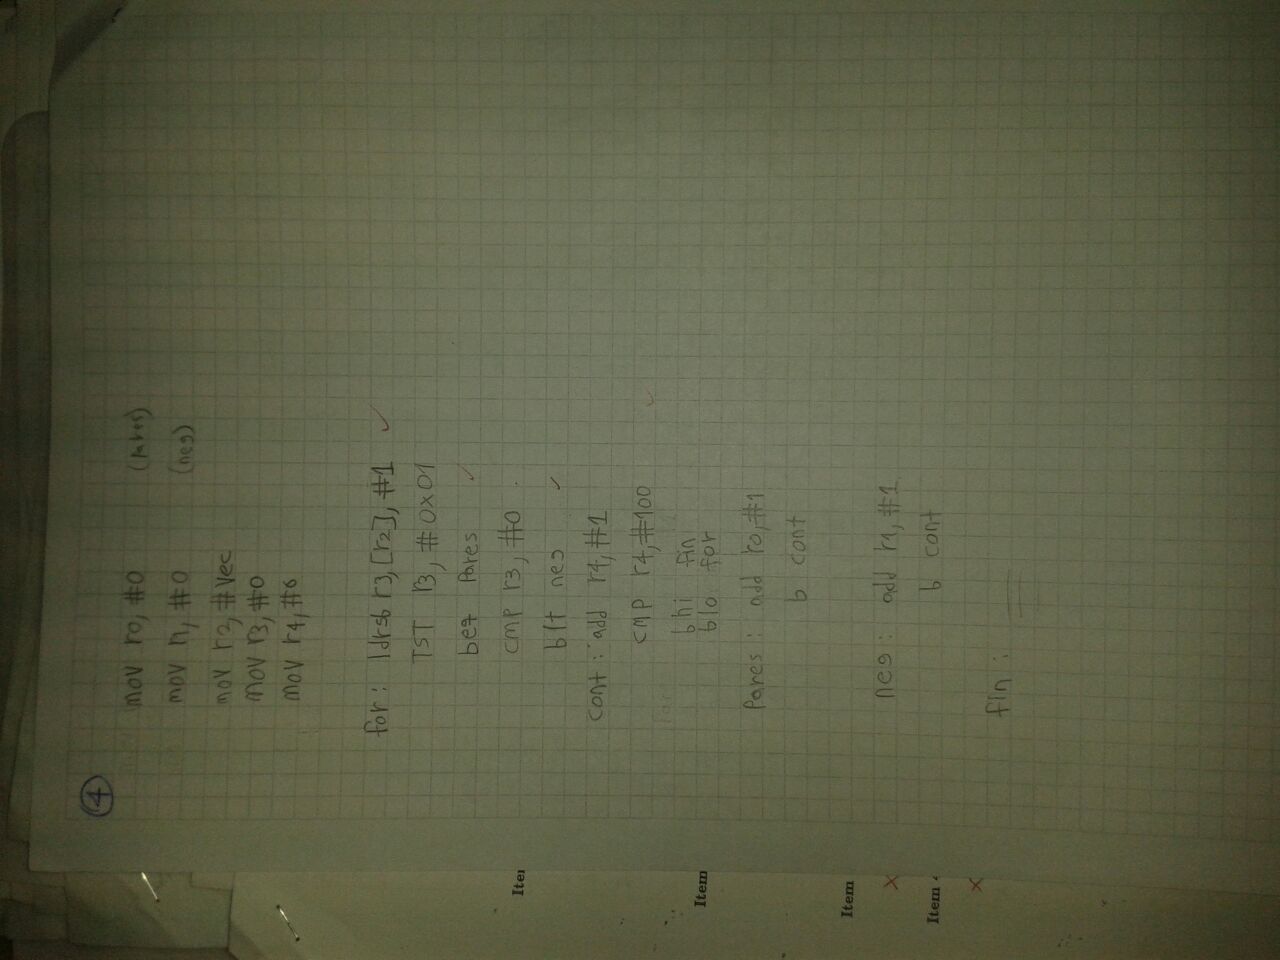 4
mov r0, #0 (pares)
mov r1, #0 (neg)
mov r2, #Vec
mov r3, #0
mov r4, #0
for: ldrsb r3,[r2], #1
TST r3, #0x01
beq Pares
cmp r3, #0
blt neg
cont: add r4, #1
cmp r4, #100
bhi fin
blo for
Pares: add r0, #1
b cont
neg: add r1, #1
b cont
fin:
Item
Item
Item
Item